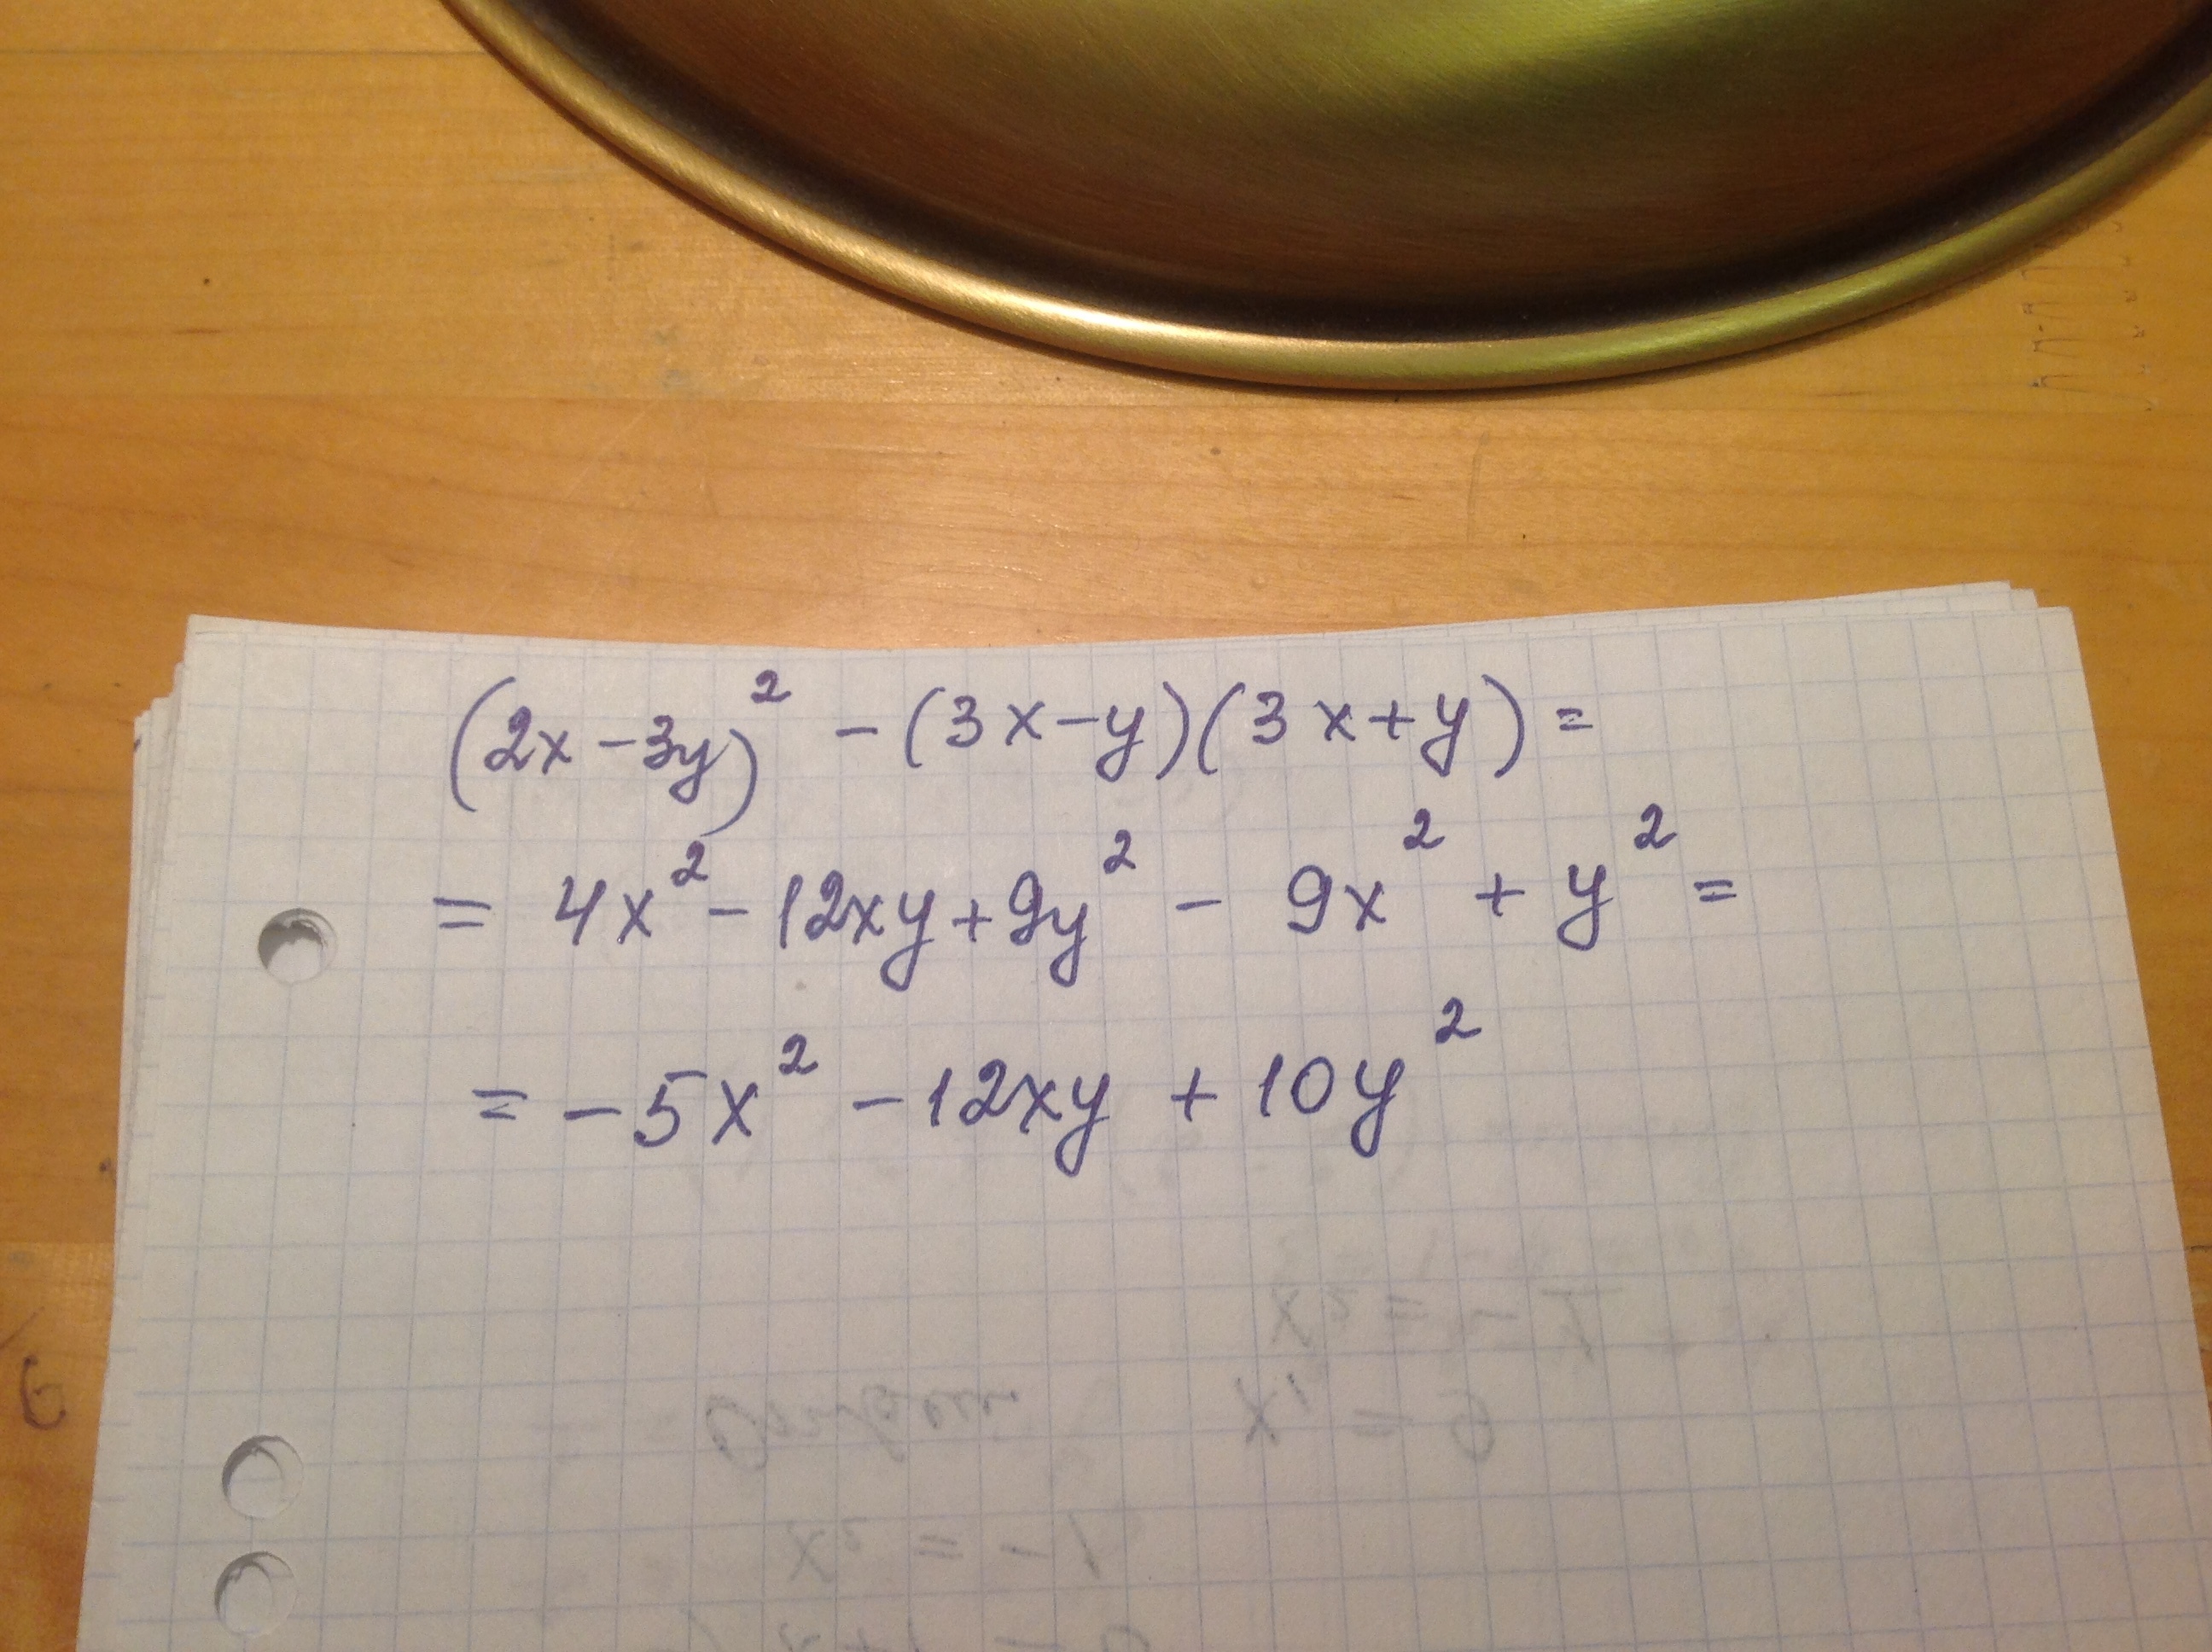 (2x-3y)² - (3x-y)(3x+y) =
= 4x² - 12xy + 9y² - 9x² + y² =
= -5x² - 12xy + 10y²